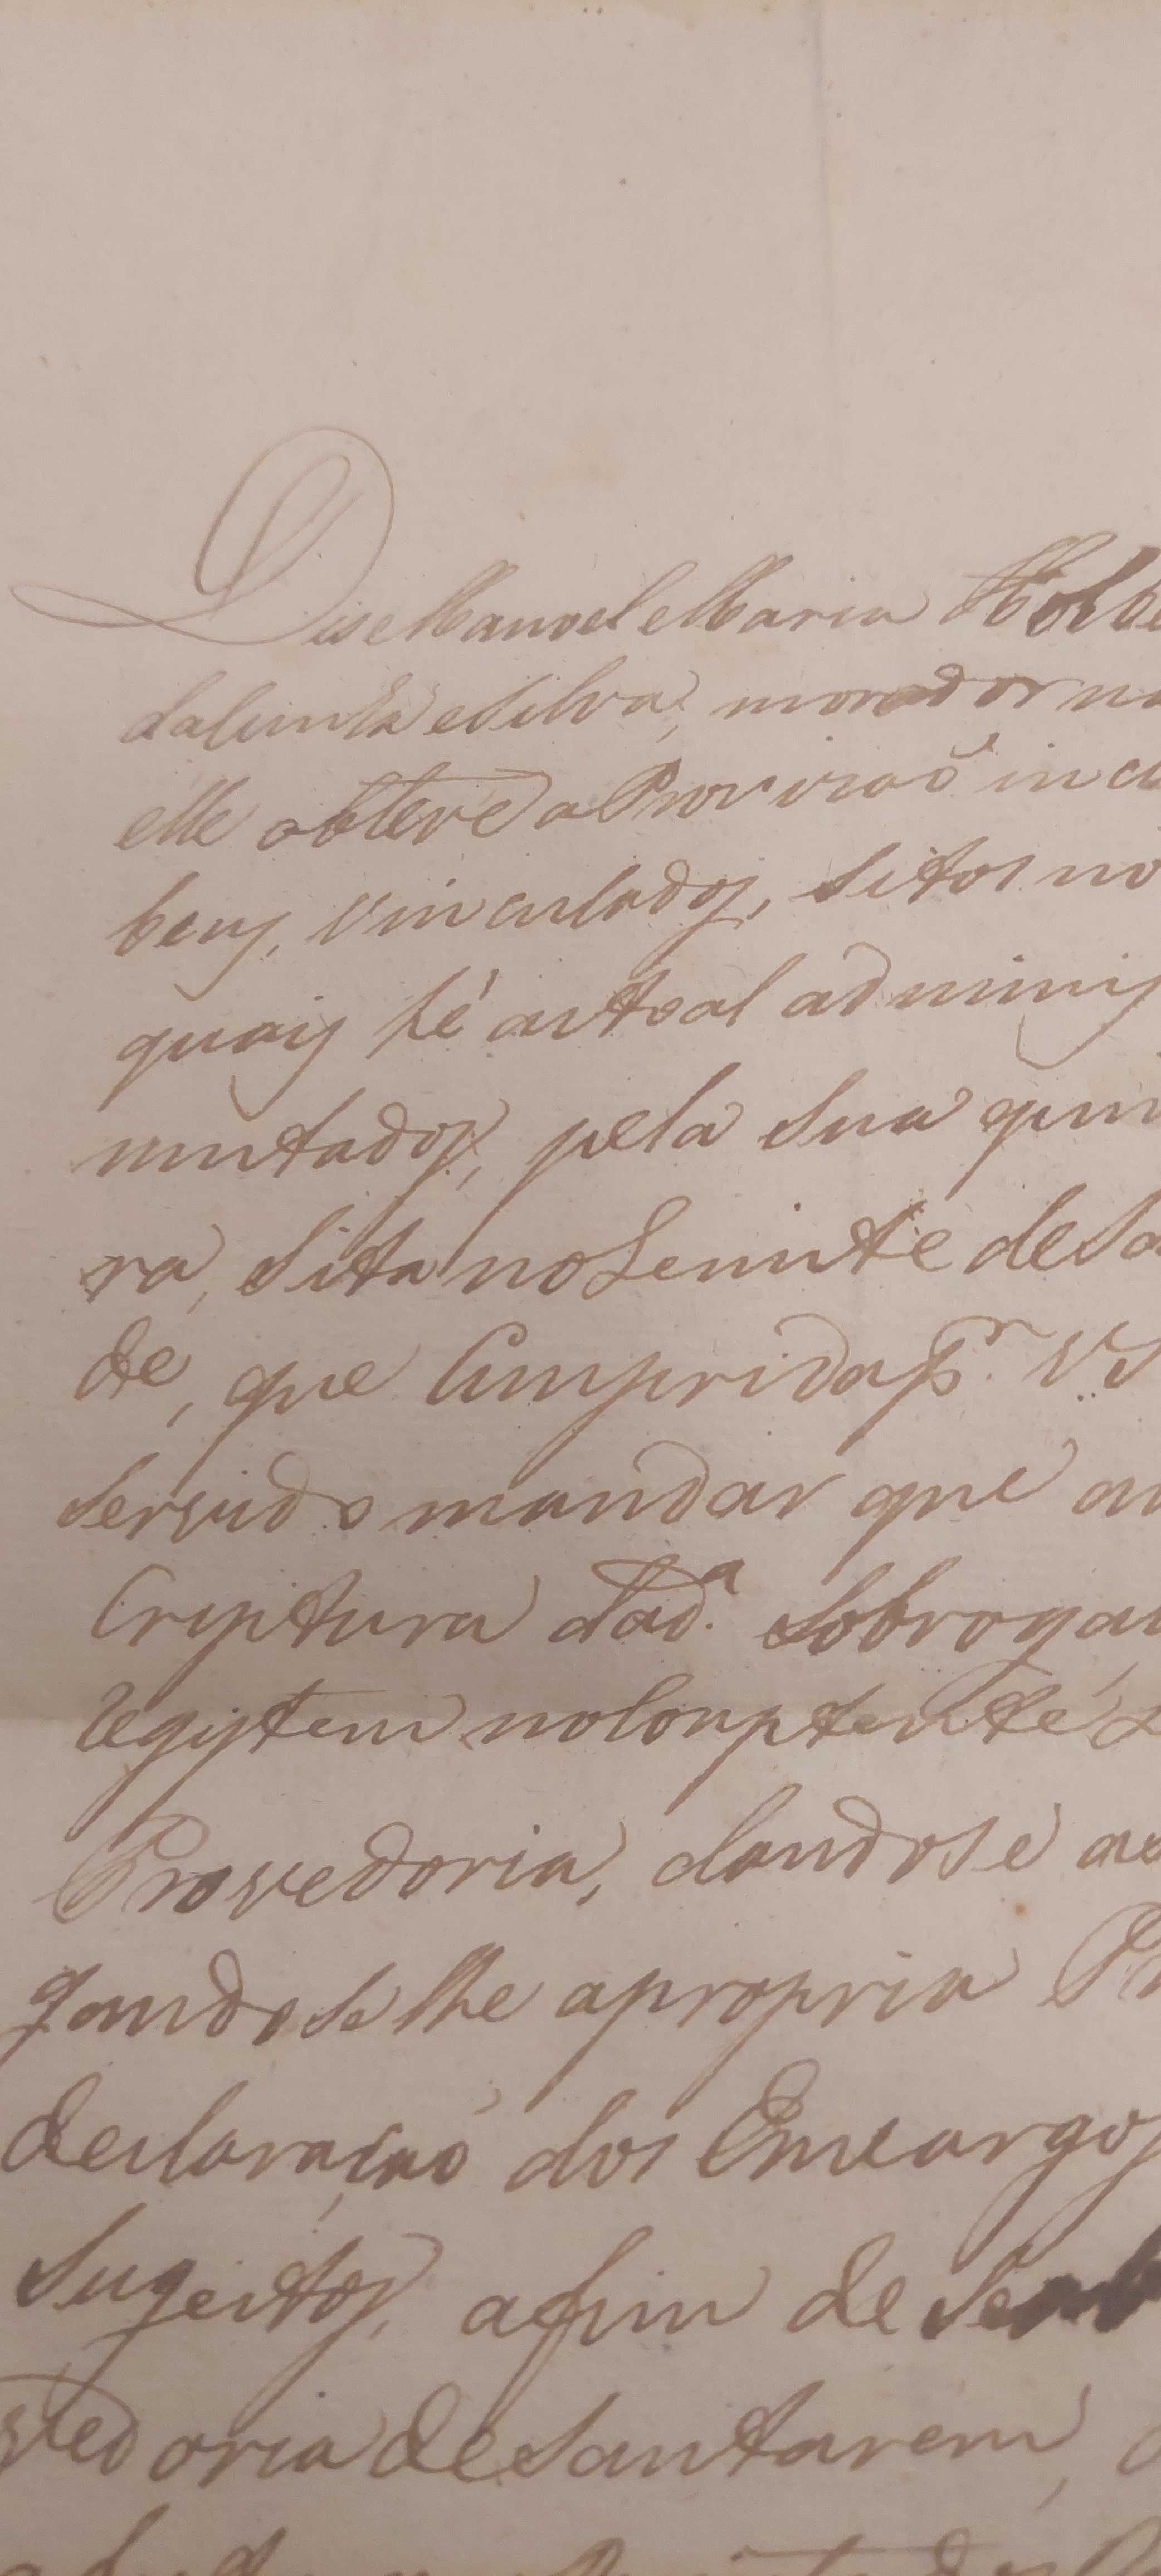 Dis Manoel Maria Holbe
dalunha eSilva, morador na
elle obteve aProvizaõ incl
bens, vinculados, sitos no
quais hé actoal adminis
mutados, pela sua quin
ra, sita noLemite deSa
de, que Cumpridas P.r V S
servido mandar que a
Criptura dad.a Sobrogaç
registem noConptente
Provedoria, dandose ao
gandoselhe apropria Pr
declaraçaõ dos Encargos
Sugeitos, afim de Ser
vedoria deSantarem,